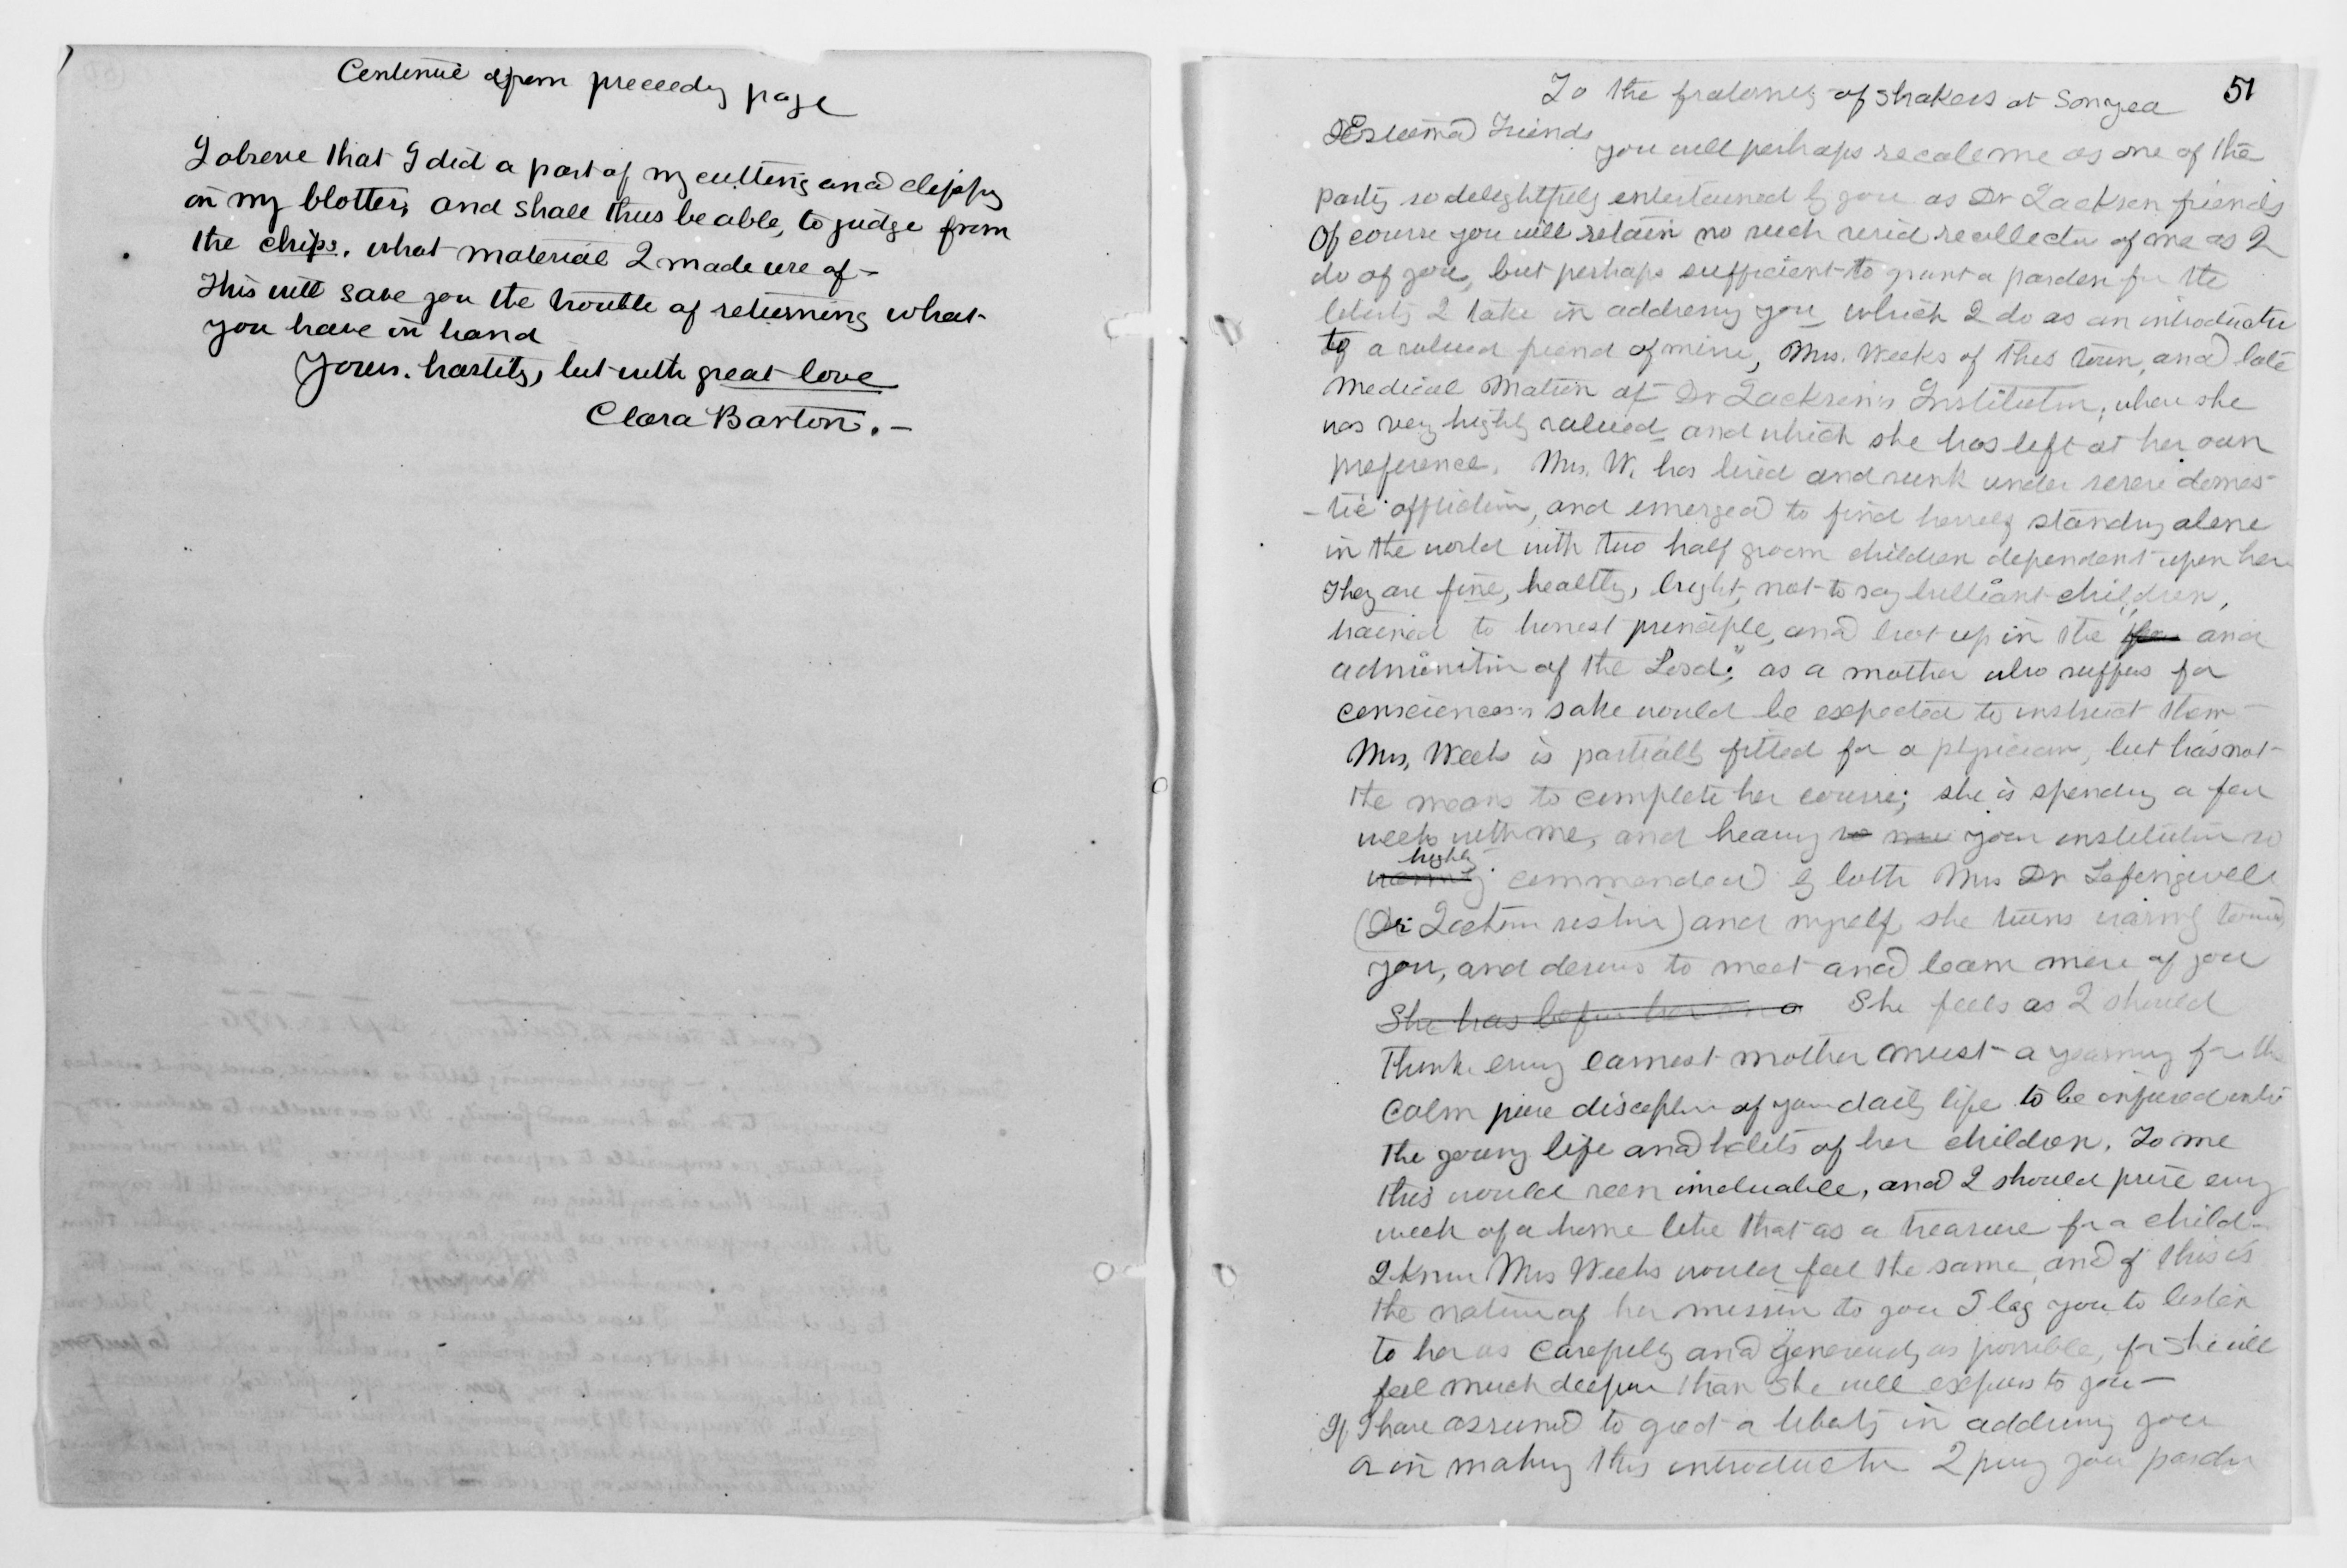 Continued from preceding page
I observe that I did a part of my cutting and clipping
on my blotter, and shall thus be able, to judge from
the chips. what material I made use of –
This will save you the trouble of returning what
you have in hand
Yours. hastily, but with great love
Clara Barton. –
51
To the fraternity of Shakers at Sonyea
Esteemed Friends
you will perhaps recall me as one of the
party so delightfully entertained by you as Dr Jackson friends
Of course you will retain no such vivid recollection of me as I
do of you, but perhaps sufficient to grant a pardon for the
liberty I take in addressing you, which I do as an introduction
to a valued friend of mine, Mrs. Weeks of this town, and late
Medical Matron at Dr Jackson's Institution, where she
was very highly valued and which she has left at her own
preference. Mrs. W. has lived and sunk under severe domes-
-tic affliction, and emerged to find herself standing alone
in the world with two half grown children dependent upon her
They are fine, healthy, bright, not to say brilliant children,
trained to honest principle, and brot up in the " and
admonition of the Lord", as a mother who suffers for
consciences sake would be expected to instruct them –
Mrs. Weeks is partially fitted for a physician, but has not
the means to complete her course; she is spending a few
weeks with me, and hearing so your institution so
highly
warmly commended by both Mrs Dr Lefingwell
(Dr Jackson sister) and myself, she turns warmly toward
you, and desires to meet and learn more of you
She has before her She feels as I should
think every earnest mother must a yearning for the
calm pure discipline of your daily life to be infused into
the young life and habits of her children. To me
this would seem invaluable, and I should prize every
week of a home like that as a treasure for a child –
I know Mrs Weeks would feel the same, and if this is
the nature of her mission to you I beg you to listen
to her as carefully and generously as possible, for she will
feel much deeper than she will express to you –
If I have assumed to great a liberty in addressing you
or in making this introduction I pray you pardon